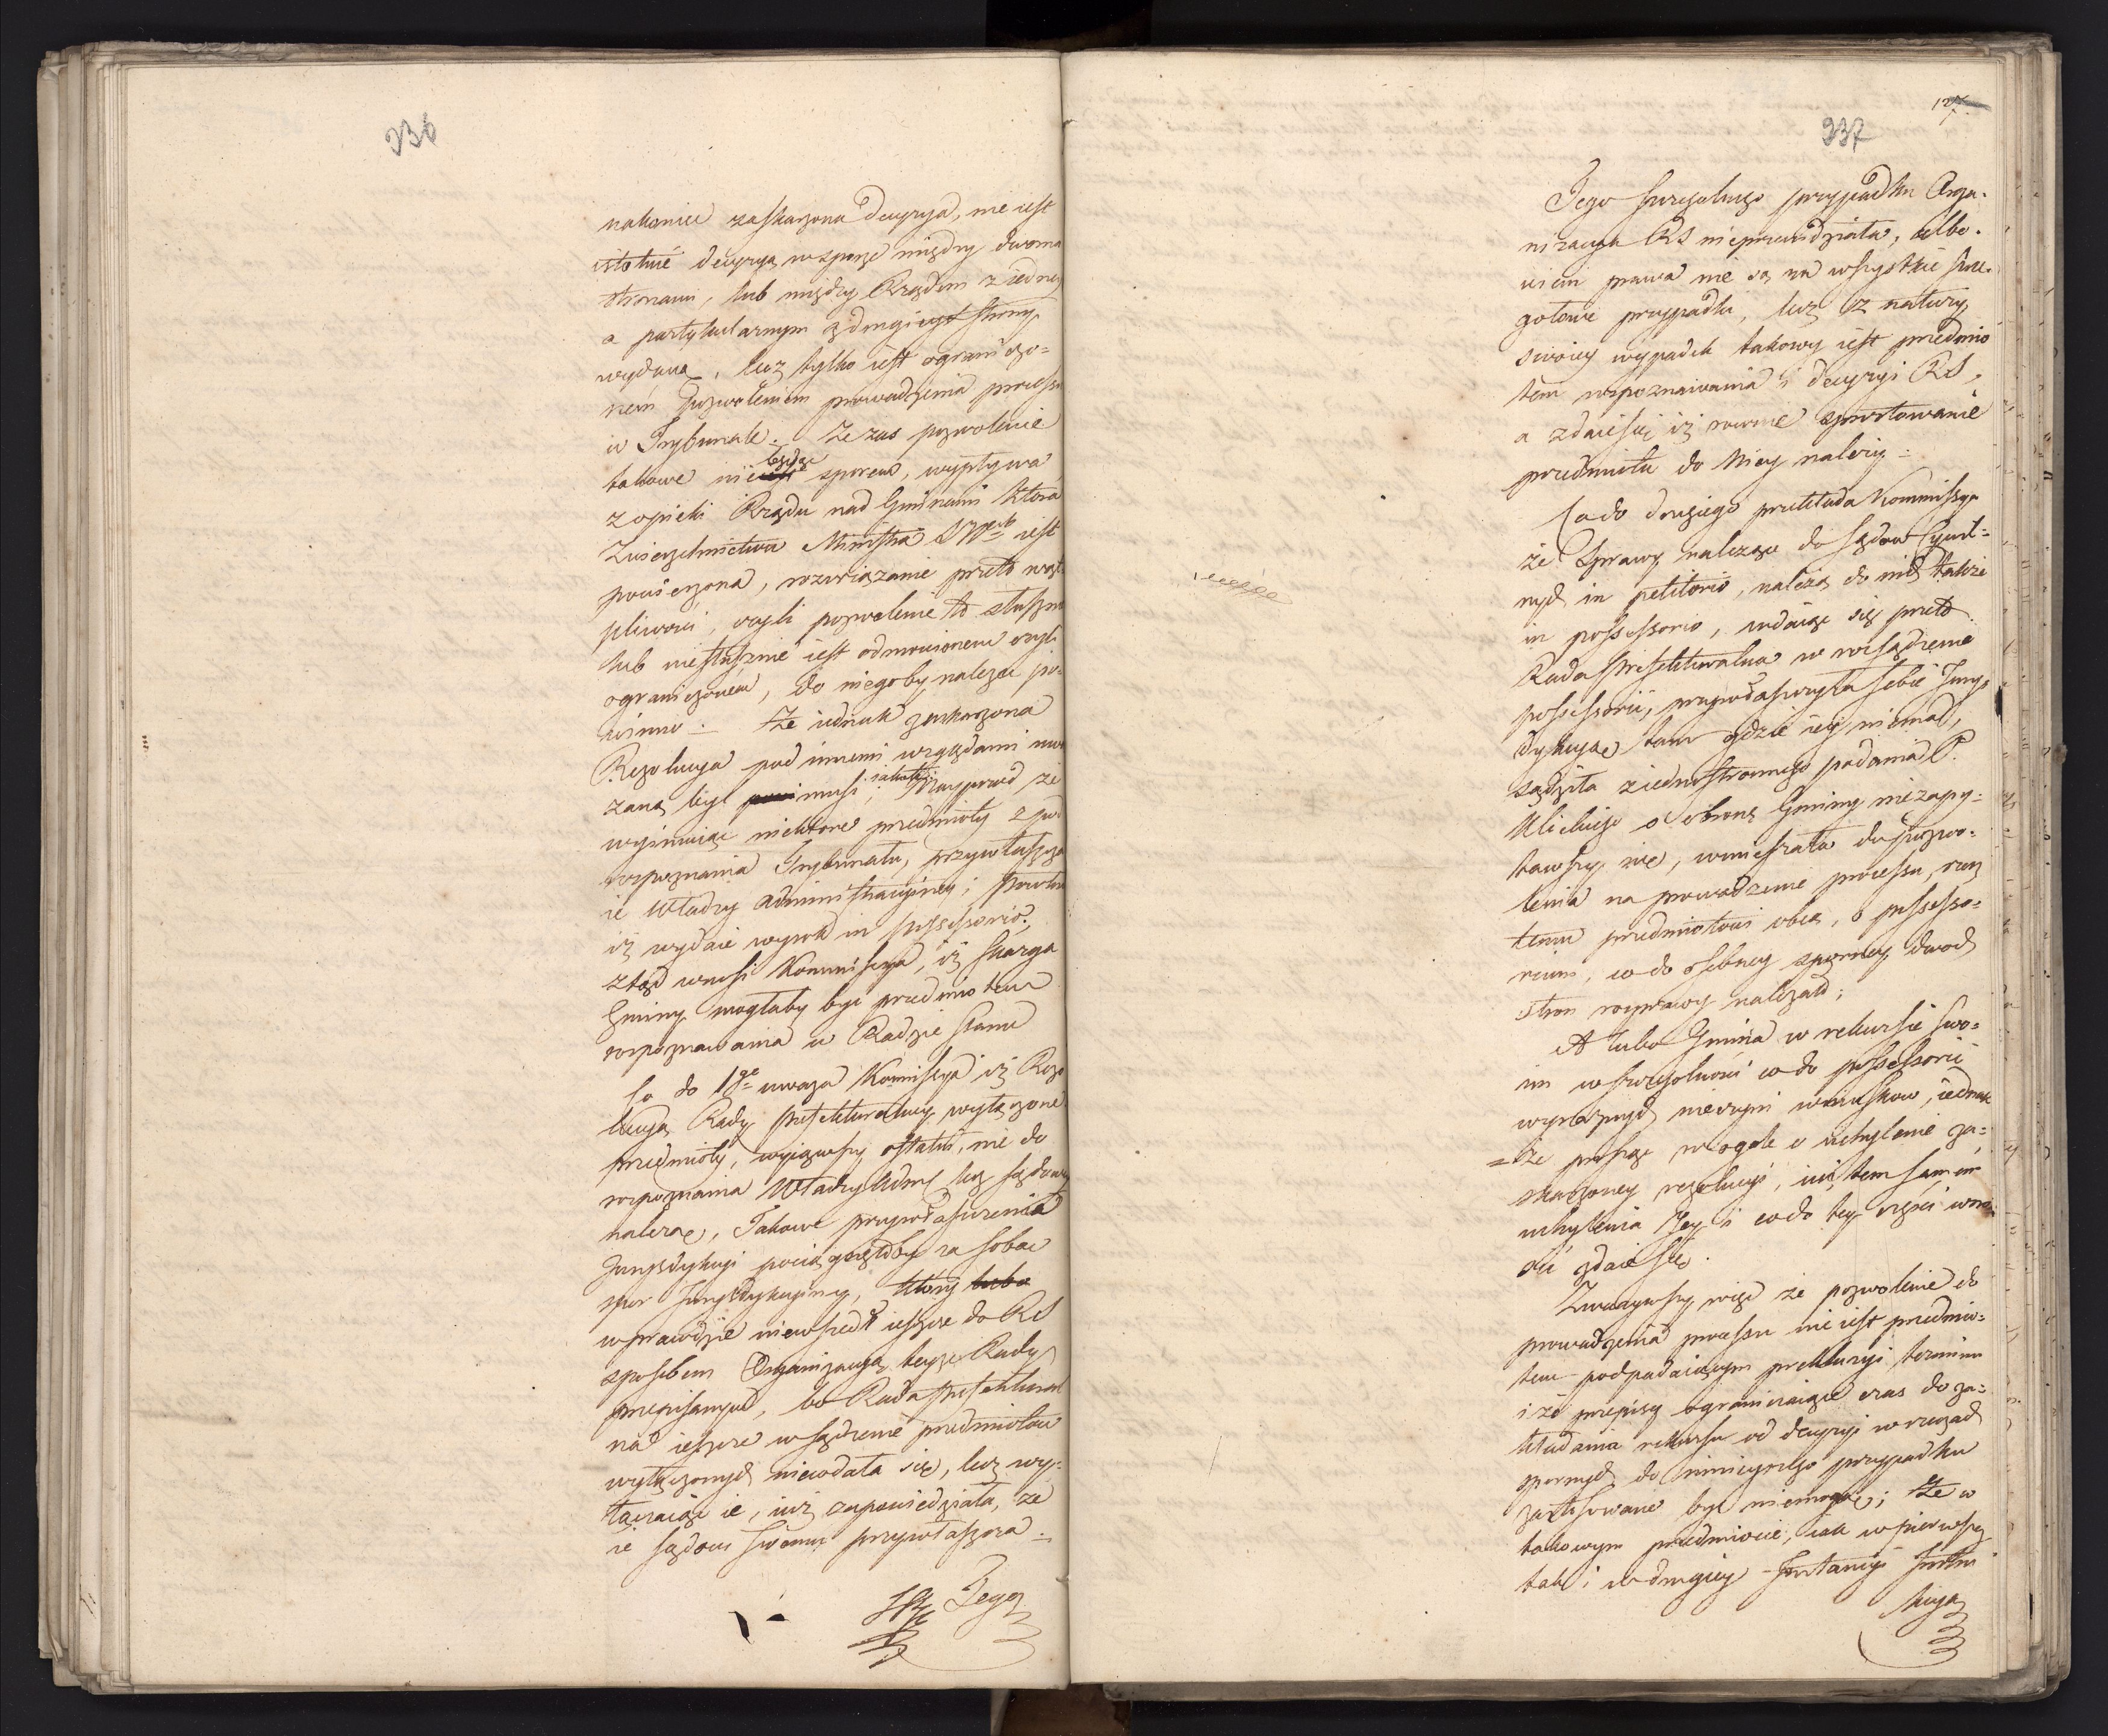 236
nakoniec zaskarżona decyzya, nie iest
istotnie decyzyą w sporze między dwoma
stronami, lub między Rządem z iedney
a partykularnym z drugiey strony
wydaną, lecz tylko iest ograniczo=
nem pozwoleniem prowadzenia processu
w Trybunale. Że zas pozwolenie
takowe nie będąc sporem, wypływa
z opieki Rządu nad Gminami która
Zwierzchnictwu Ministra SPW iest
powierzona, rozwiązanie przeto wąt
pliwości, czyli pozwolenie to słusznie
lub niesłusznie iest odmowionem czyli
ograniczonem, do niegoby należeć po=
winno. Że iednak zaskarżona
Rezolucya pod innemi względami uwa
żaną być musi, Nayprzod że
wyimuiąc niektóre przedmioty z pod
rozpoznania Trybunału, przywłaszcza
ie Władzy administracyiney; powtóre
iż wydaie wyrok in possessorio;
ztąd wnosi Kommissya, iż skarga
Gminy mogłaby być przedmiotem
rozpoznawania w Radzie Stanu
Co do 1go uważa Kommissya iż Rezo
lucyą Rady Prefekturalney wyłączone
przedmioty, wyiąwszy ostatni, nie do
rozpoznania Władzy Adms lecz sądowey
należą, Takowe przywłaszczenia
Jurysdykcyi pociągnęłoby za sobą
spor Jurysdykcyiny, który lubo
wprawdzie niewszedł ieszcze do RS
sposobem Organizacyą teyże Rady
przepisanym, bo Rada Prefektural
na ieszcze w sądzenie przedmiotow
wyłączonych niewdała się, lecz wy=
łączaiąc ie, iuż zapowiedziała, że
ie sądowi swemu przywłaszcza.
Tego
127
237
Tego szczegulnego przypadku Orga=
nizacya RS nieprzewidziała, albo=
wiem prawa nie są na wszystkie szcze=
gołowe przypadki, lecz z natury
swoiey wypadek takowy iest przedmio
tem rozpoznawania i decyzyi RS,
a zdaie się iż rowne sprostowanie
przedmiotu do Niey należy.
Co do drugiego przekłada Kommissya
że Sprawy należące do Sądow Cywil=
nych in petitorio, należą do nich także
in possessorio, wdaiąc się przeto
Rada Prefekturalna w rozsądzenie
possessorii, przywłaszczyła sobie Jury=
dykcyą tam gdzie iey niema,
sądziła z iednostronnego podania P.
Klickiego o obronę Gminy niezapy=
tawszy się, wmieszała do pozwo=
lenia na prowadzenie processu, rzecz
temu przedmiotowi obcą, o possesso=
rium, co do osobney sporney dwoch
stron rozprawy należało;
A lubo Gmina w rekursie swo=
im w szczegolności co do possessorii
wyraznych nieczyni wniosków, iednak
= że prosząc w ogole o uchylenie za=
skarżoney rezolucyi, iuż tem samem
uchylenia Jey i co do tey części wno
sić zdaie się.
Zważywszy więc że pozwolenie do
prowadzenia processu nie iest przedmio=
tem podpadaiącym prekluzyi terminu
i że przepisy ograniczaiące czas do za=
kładania rekursu od decyzyi w rzeczach
spornych do ninieyszego przypadku
zastosowane być niemogą; Że w
takowym przedmiocie, iak w pierwszey
tak i w drugiey Instancyi Instru
kcya